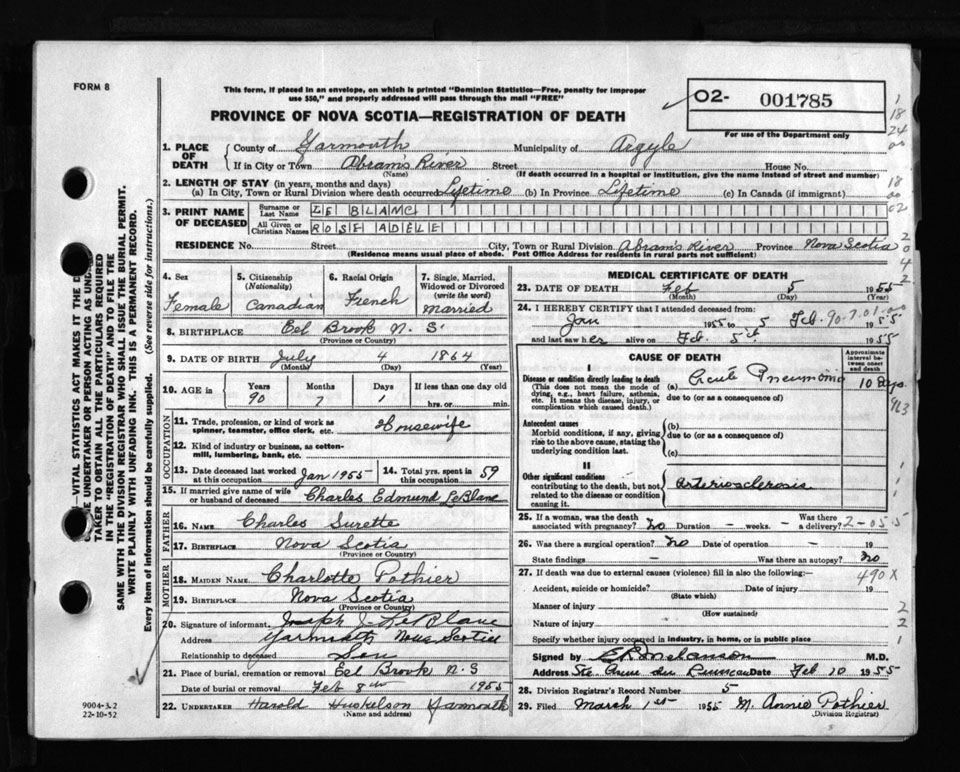 FORM 8
This form, if placed in an envelope, on which is printed "Dominion Statistics—Free, penalty for improper
use $50," and properly addressed will pass through the mail "FREE"
PROVINCE OF NOVA SCOTIA—REGISTRATION OF DEATH
02- 001785
For use of the Department only
1. PLACE OF DEATH
County of Yarmouth Municipality of Argyle
If in City or Town Abram's River Street House No.
(Name) (If death occurred in a hospital or institution, give the name instead of street and number)
2. LENGTH OF STAY (in years, months and days)
(a) In City, Town or Rural Division where death occurred Lifetime (b) In Province Lifetime (c) In Canada (if immigrant)
3. PRINT NAME OF DECEASED
Surname or Last Name LE BLANC
All Given or Christian Names ROSE ADELE
RESIDENCE No. Street City, Town or Rural Division Abram's River Province Nova Scotia
(Residence means usual place of abode. Post Office Address for residents in rural parts not sufficient)
4. Sex
Female
5. Citizenship
(Nationality)
Canadian
6. Racial Origin
French
7. Single, Married, Widowed or Divorced
(write the word)
Married
8. BIRTHPLACE Eel Brook N. S.
(Province or Country)
9. DATE OF BIRTH July 4 1864
(Month) (Day) (Year)
10. AGE is
Years Months Days If less than one day old
90 7 1 hrs. or min.
OCCUPATION
11. Trade, profession, or kind of work as
spinner, teamster, office clerk, etc. Housewife
12. Kind of industry or business, as cotton-
mill, lumbering, bank, etc.
13. Date deceased last worked
at this occupation Jan 1955
14. Total yrs. spent in
this occupation 59
15. If married give name of wife
or husband of deceased Charles Edmund LeBlanc
FATHER
16. NAME Charles Surette
17. BIRTHPLACE Nova Scotia
(Province or Country)
MOTHER
18. MAIDEN NAME Charlotte Pothier
19. BIRTHPLACE Nova Scotia
(Province or Country)
20. Signature of informant Joseph J. LeBlanc
Address Yarmouth Nova Scotia
Relationship to deceased Son
21. Place of burial, cremation or removal Eel Brook N. S
Date of burial or removal Feb 8th 1955
22. UNDERTAKER Harold Huskelson Yarmouth
(Name and address)
MEDICAL CERTIFICATE OF DEATH
23. DATE OF DEATH Feb 5 1955
(Month) (Day) (Year)
24. I HEREBY CERTIFY that I attended deceased from:
Jan 1955 to 5 Feb. 1955
90-7.01-0
and last saw her alive on Feb. 5th 1955
CAUSE OF DEATH
Approximate interval between onset and death
I
Disease or condition directly leading to death
(This does not mean the mode of dying, e.g., heart failure, asthenia, etc. It means the disease, injury, or complication which caused death.)
(a) Acute Pneumonia 10 days
due to (or as a consequence of)
Antecedent causes
Morbid conditions, if any, giving rise to the above cause, stating the underlying condition last.
(b)
due to (or as a consequence of)
(c)
II
Other significant conditions
contributing to the death, but not related to the disease or condition causing it.
Arteriosclerosis
25. If a woman, was the death
associated with pregnancy? No Duration - weeks. - Was there a delivery?
2-055
26. Was there a surgical operation? No Date of operation — 19
State findings — Was there an autopsy? No
27. If death was due to external causes (violence) fill in also the following:—
490X
Accident, suicide or homicide? Date of injury 19
(State which)
Manner of injury
(How sustained)
Nature of injury
Specify whether injury occurred in industry, in home, or in public place
Signed by E R Melanson M.D.
Address Ste. Anne du Ruisseau Date Feb 10 1955
28. Division Registrar's Record Number 5
29. Filed March 1st 1955 M. Annie Pothier
(Division Registrar)
9004-3.2
22-10-52
VITAL STATISTICS ACT MAKES IT THE
UNDERTAKER OR PERSON ACTING AS
TAKER TO OBTAIN ALL THE PARTICULARS REQUIRED
IN THE "REGISTRATION OF DEATH" AND TO FILE THE
SAME WITH THE DIVISION REGISTRAR WHO SHALL ISSUE THE BURIAL PERMIT.
WRITE PLAINLY WITH UNFADING INK. THIS IS A PERMANENT RECORD.
Every item of information should be carefully supplied. (See reverse side for instructions.)